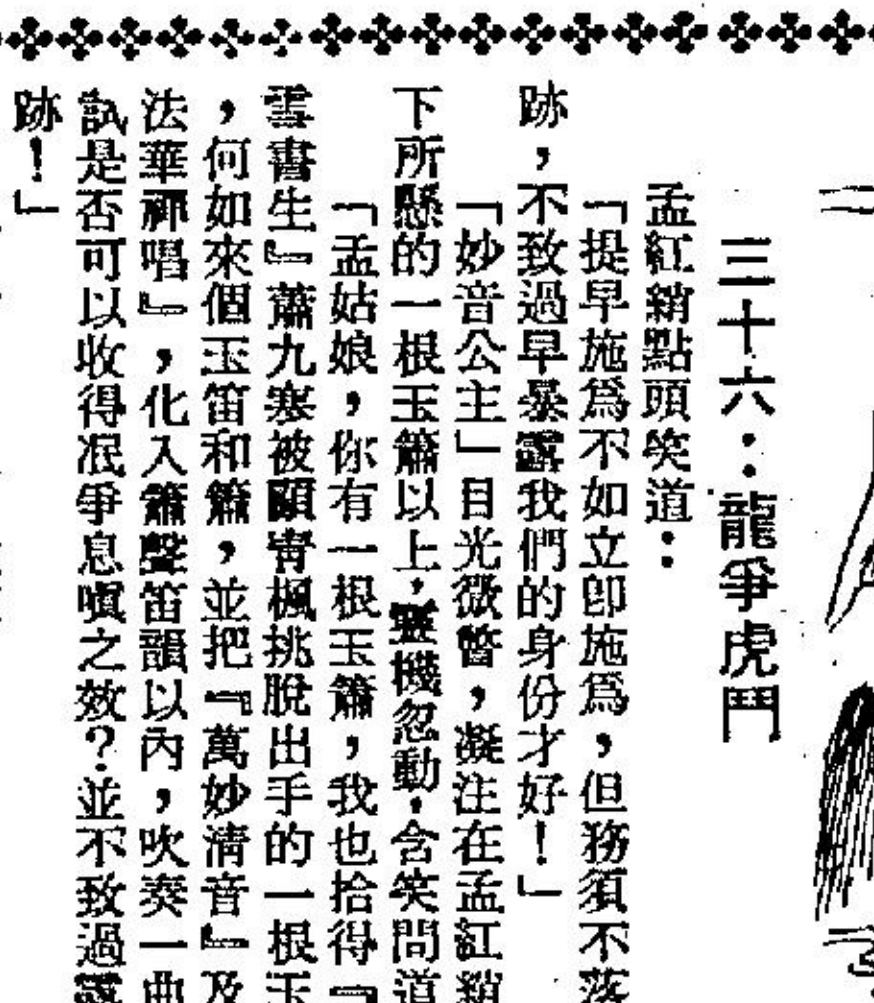 三十六：龍爭虎鬥
孟紅綃點頭笑道：
「提早施爲不如立卽施爲，但務須不落
跡，不致過早暴露我們的身份才好！」
「妙音公主」目光微瞥，凝注在孟紅綃
下所懸的一根玉簫以上，靈機忽動，含笑問道
「孟姑娘，你有一根玉簫，我也拾得『
雪書生』蕭九寒被顧宵楓挑脫出手的一根玉
，何如來個玉笛和簫，並把『萬妙清音』及
法華禪唱』，化入簫聲笛韻以內，吹奏一曲
試是否可以收得泯爭息嗔之效？並不致過露
跡！」